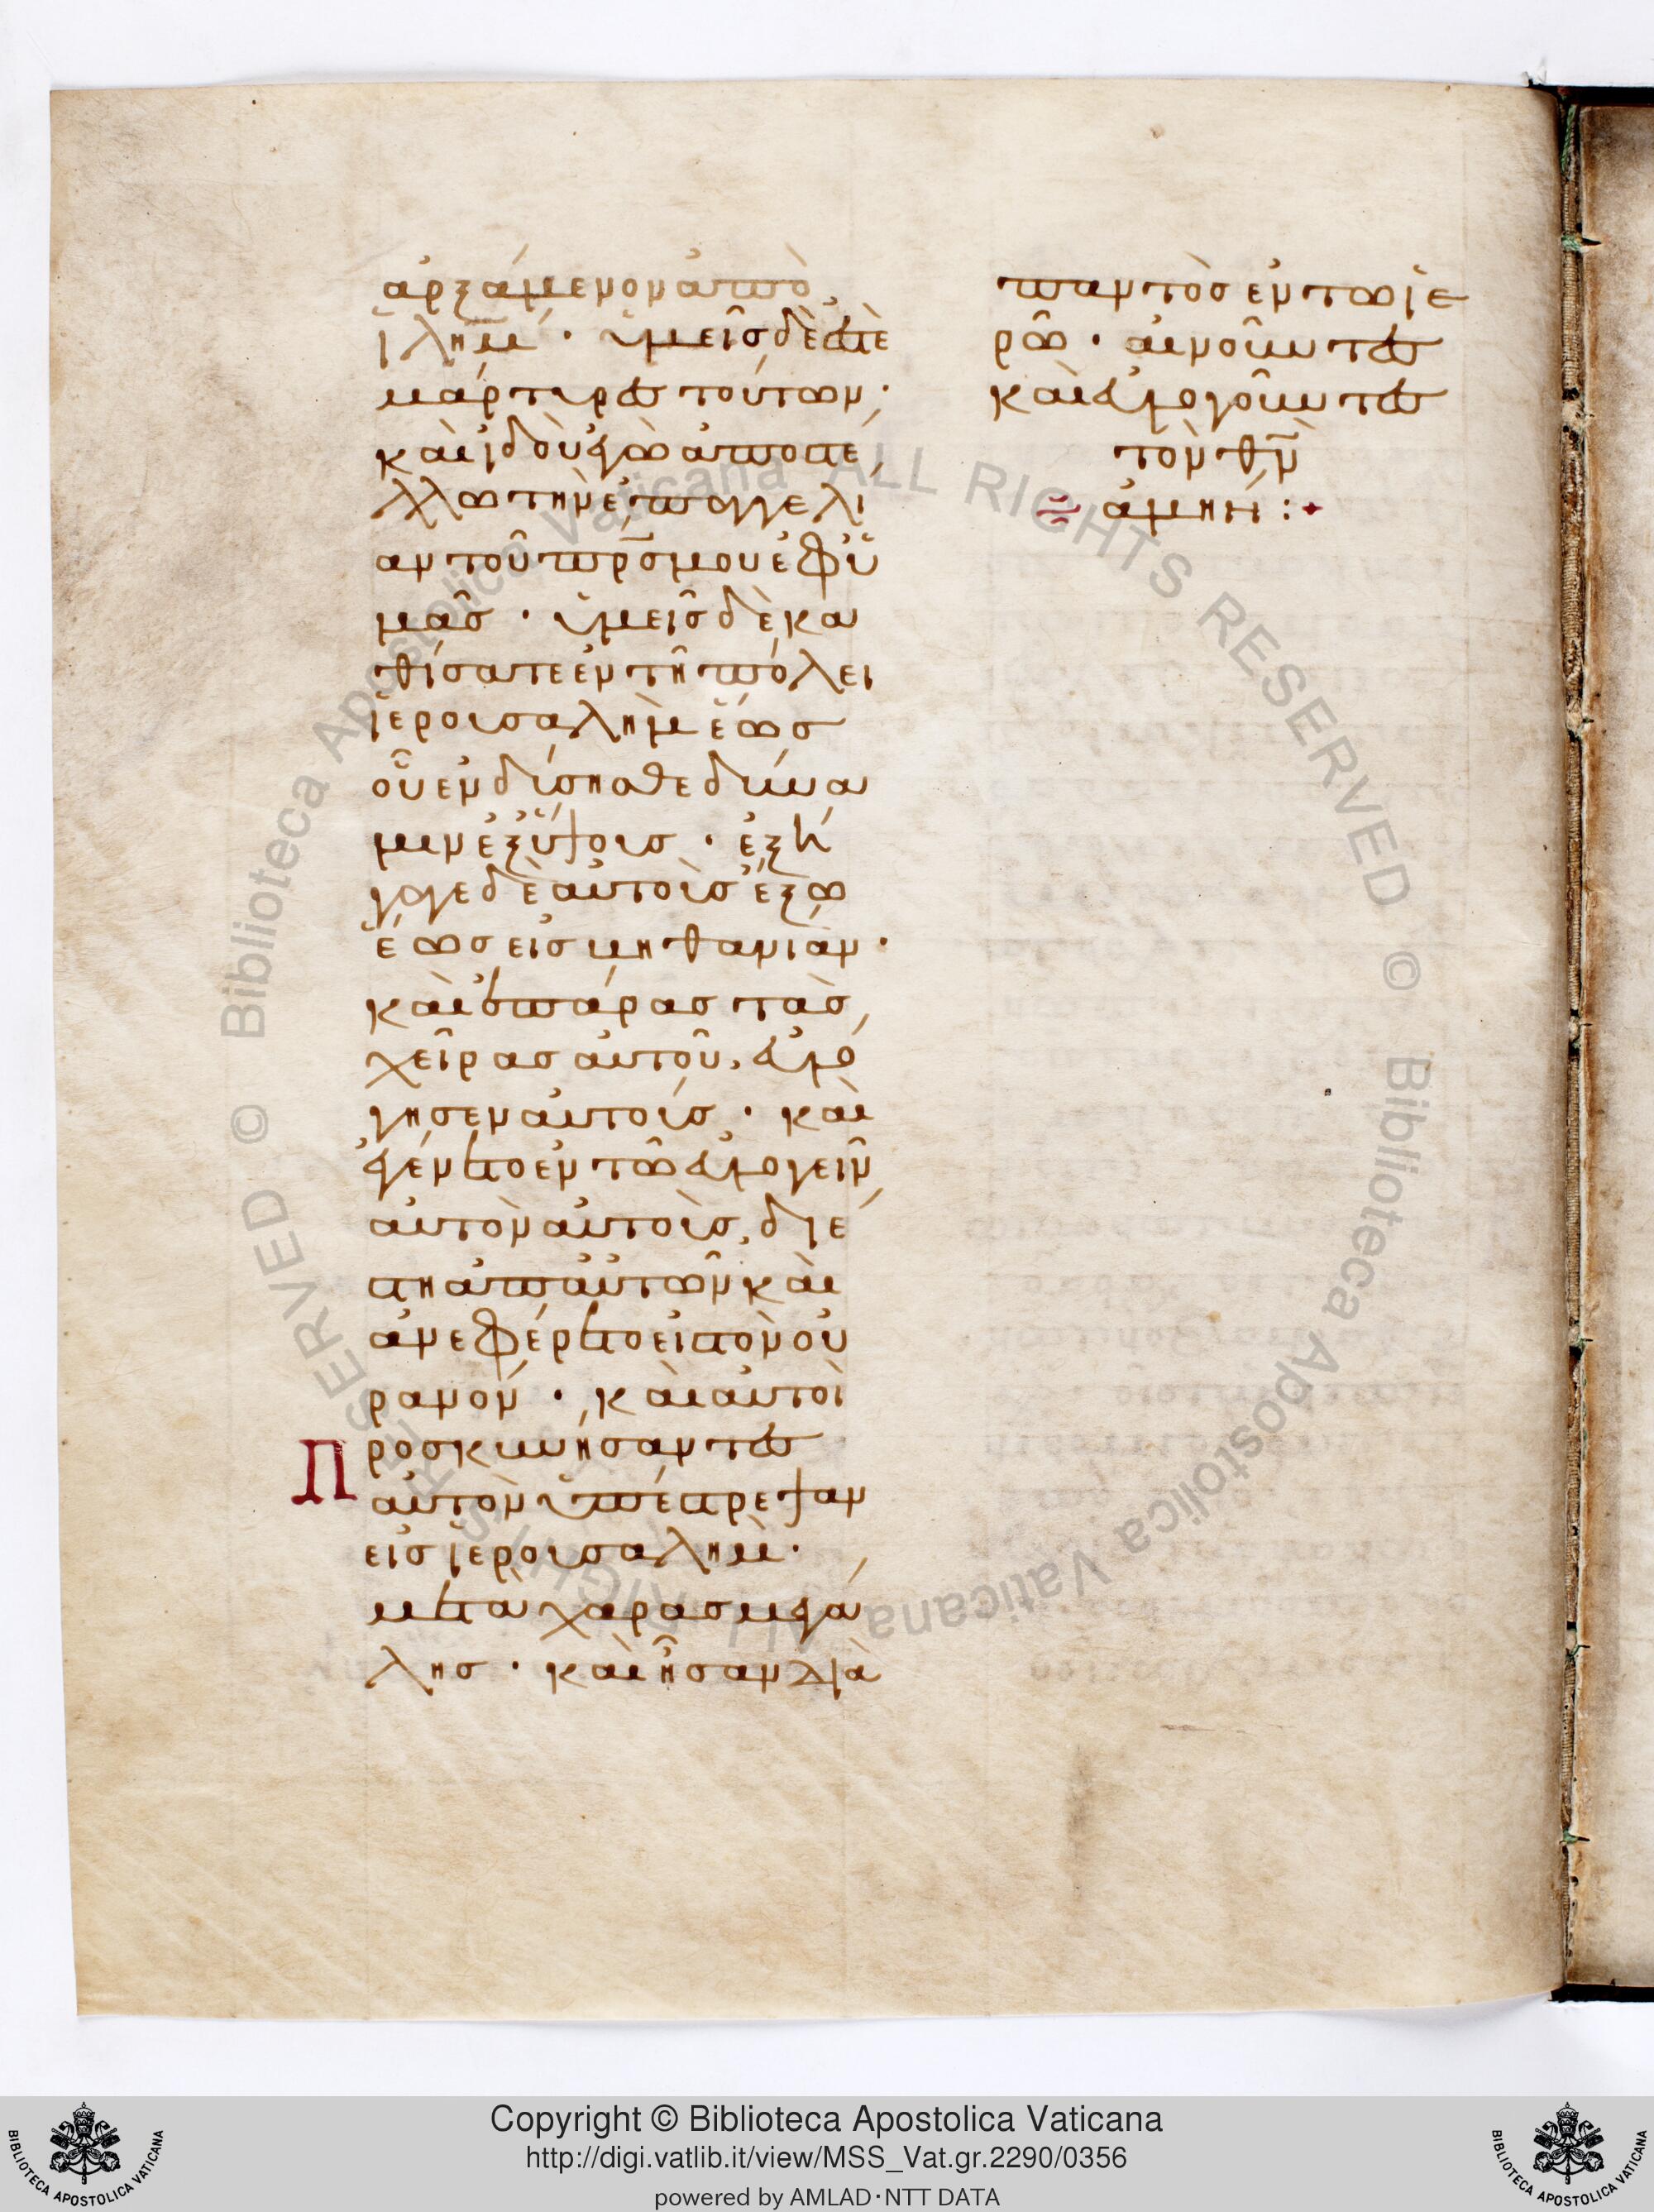 ἀρξάμενον ἀπὸ
ἱλημ̅· ὑμεῖς δὲ ἐστὲ
μάρτυρες τούτων·
καὶ ἰδοὺ ἐγὼ ἀποστέ
λλω τὴν ἐπαγγελί
αν τοῦ πρ̅σ μου ἐφ ὑ
μᾶς· ὑμεῖς δὲ κα
θίσατε ἐν τῆ πόλει
ἱερουσαλὴμ ἕως
οὗ ἐνδύσησθε δύνα
μιν ἐξ ὕψους· ἐξή
γαγε δὲ αὐτοὺς ἔξω
ἕως εἰς βηθανίαν·
καὶ ἐπάρας τὰς
χεῖρας αὐτοῦ, εὐλό
γησεν αὐτούς· καὶ
ἐγένετο ἐν τῶ εὐλογεῖν
αὐτὸν αὐτοὺς, διέ
στη ἀπ αὐτῶν καὶ
ἀνεφέρετο εἰς τὸν οὐ
ρανόν· καὶ αὐτοὶ
Προσκυνήσαντες
αὐτὸν ὑπέστρεψαν
εἰς ἱερουσαλὴμ·
μετὰ χαρᾶς μεγά
λης· καὶ ἦσαν διὰ
παντὸς ἐν τῶ ἱε
ρῶ· αἰνοῦντες
καὶ εὐλογοῦντες
τὸν θν̅
ἀμήν :
Copyright © Biblioteca Apostolica Vaticana
http://digi.vatlib.it/view/MSS_Vat.gr.2290/0356
powered by AMLAD·NTT DATA
BIBLIOTECA APOSTOLICA VATICANA
BIBLIOTECA APOSTOLICA VATICANA
© Biblioteca Apostolica Vaticana ALL RIGHTS RESERVED © Biblioteca Apostolica Vaticana ALL RIGHTS RESERVED